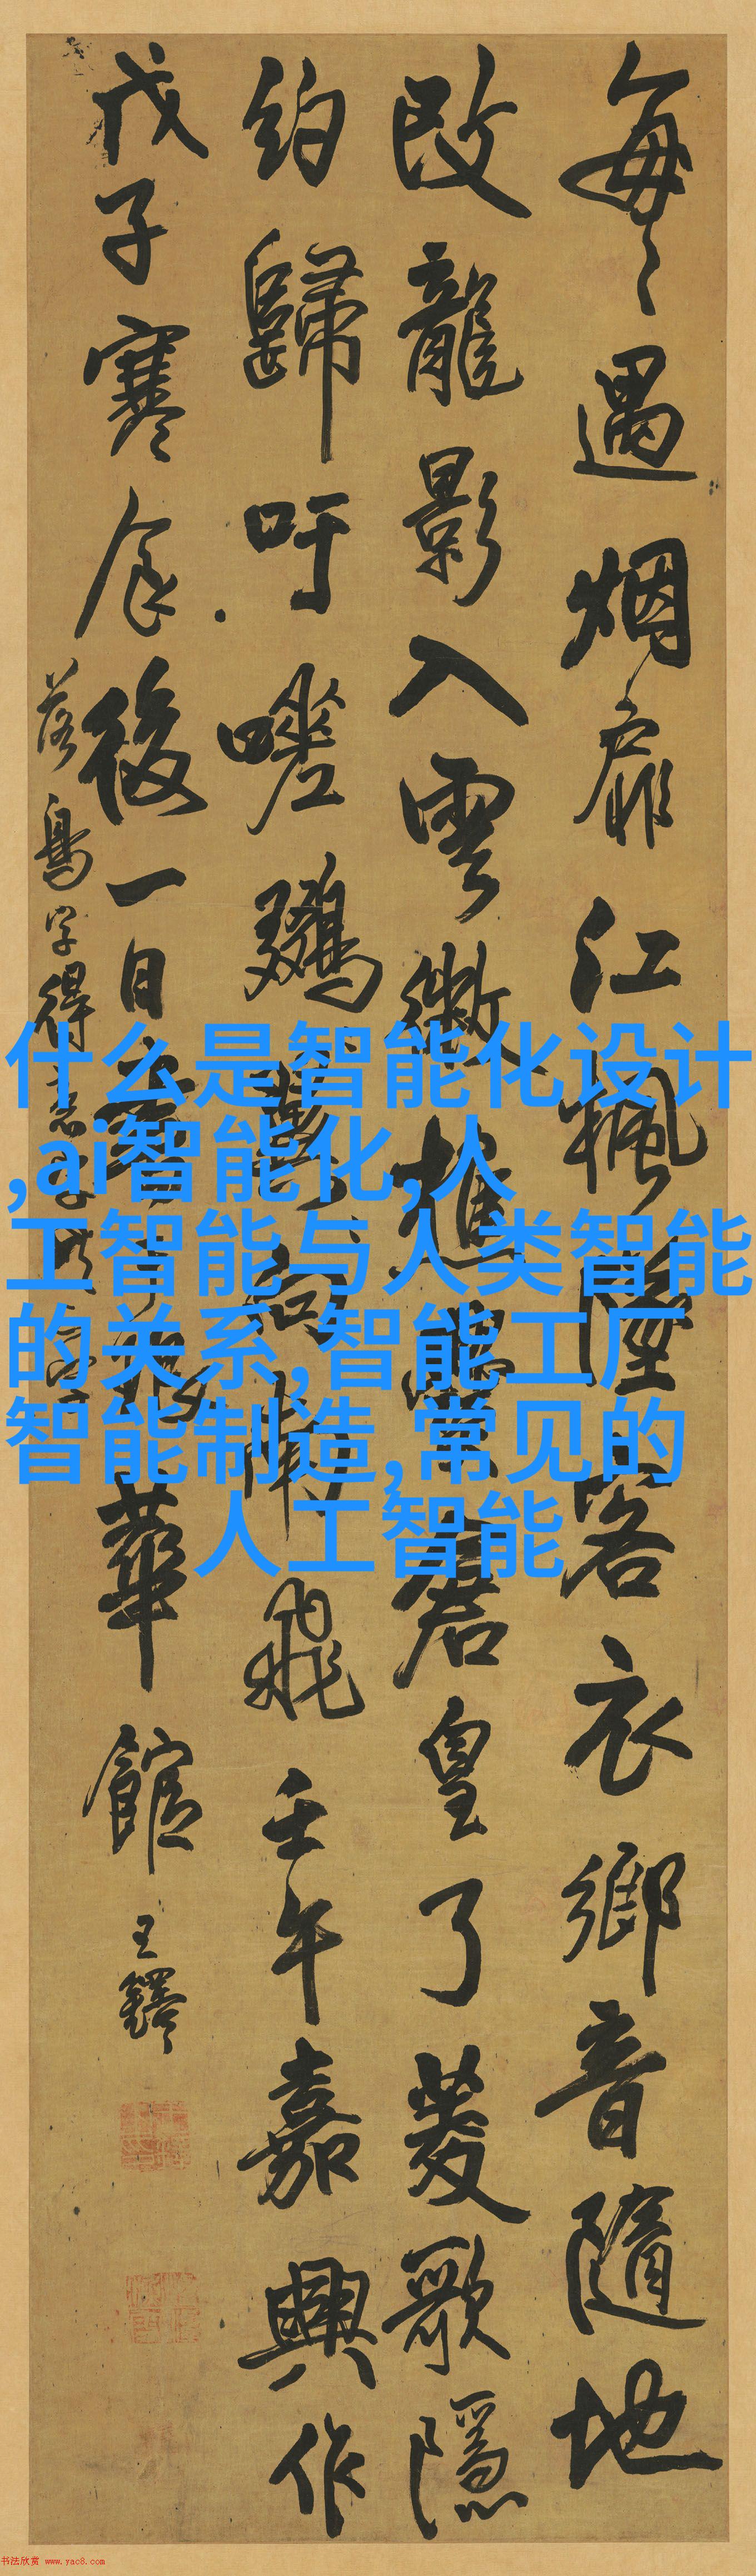 每〻遇烟扉江楓墜客衣鄉音隨地
改龍影入雲微樵蒼皇了菱歌隱
約歸吁嗟飛壬午嘉興作
戊子寒食後一日華館王鐸
落鳥字得意
什么是智能化设计
,ai智能化,人
工智能与人类智能
的关系,智能工厂
智能制造,常见的
人工智能
书法欣赏 www.yac8.com